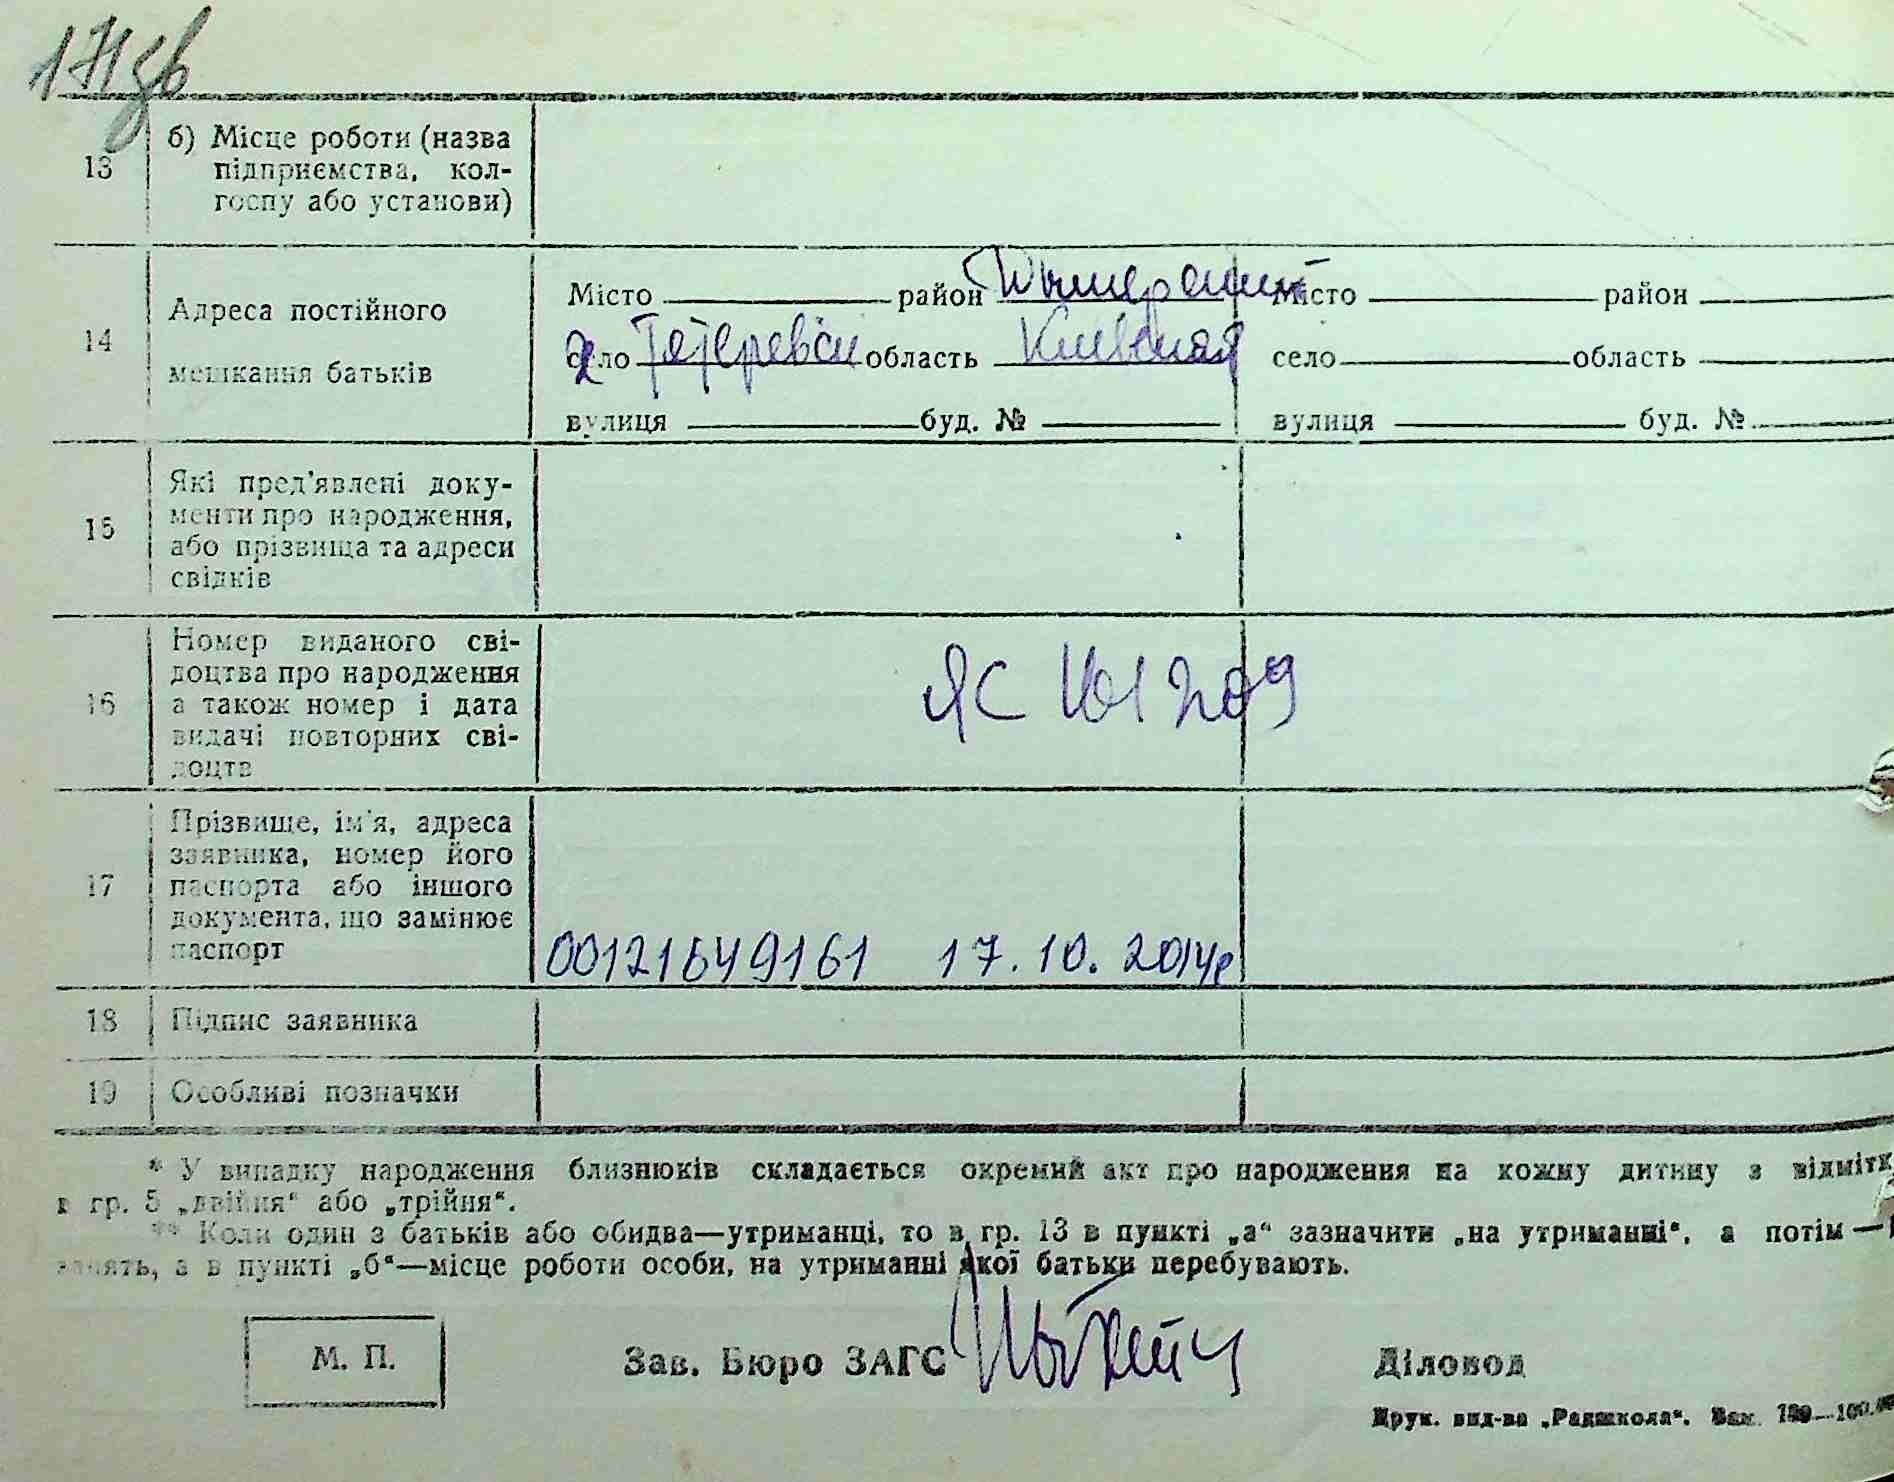 171зв
13 б) Місце роботи (назва
підприємства, кол-
госпу або установи)
14 Адреса постійного
мешкання батьків
Місто район Дымерский Місто район
село область Киевская село область
вулиця буд. № вулиця буд. №
15 Які пред'явлені доку-
менти про народження,
або прізвища та адреси
свідків
16 Номер виданого сві-
доцтва про народження
а також номер і дата
видачі повторних сві-
доцтв
ЯС 101209
17 Прізвище, ім'я, адреса
заявника, номер його
паспорта або іншого
документа, що замінює
паспорт
00121649161 17.10.2014р
18 Підпис заявника
19 Особливі позначки
* У випадку народження близнюків складається окремий акт про народження на кожну дитину з відмітк
в гр. 5 „двійня“ або „трійня“.
** Коли один з батьків або обидва—утриманці, то в гр. 13 в пункті „а“ зазначити „на утриманні“, а потім —
занять, а в пункті „б“—місце роботи особи, на утриманні якої батьки перебувають.
М. П. Зав. Бюро ЗАГС Діловод
Друк. вид-ва „Радшкола“. Зам. 139—100.00